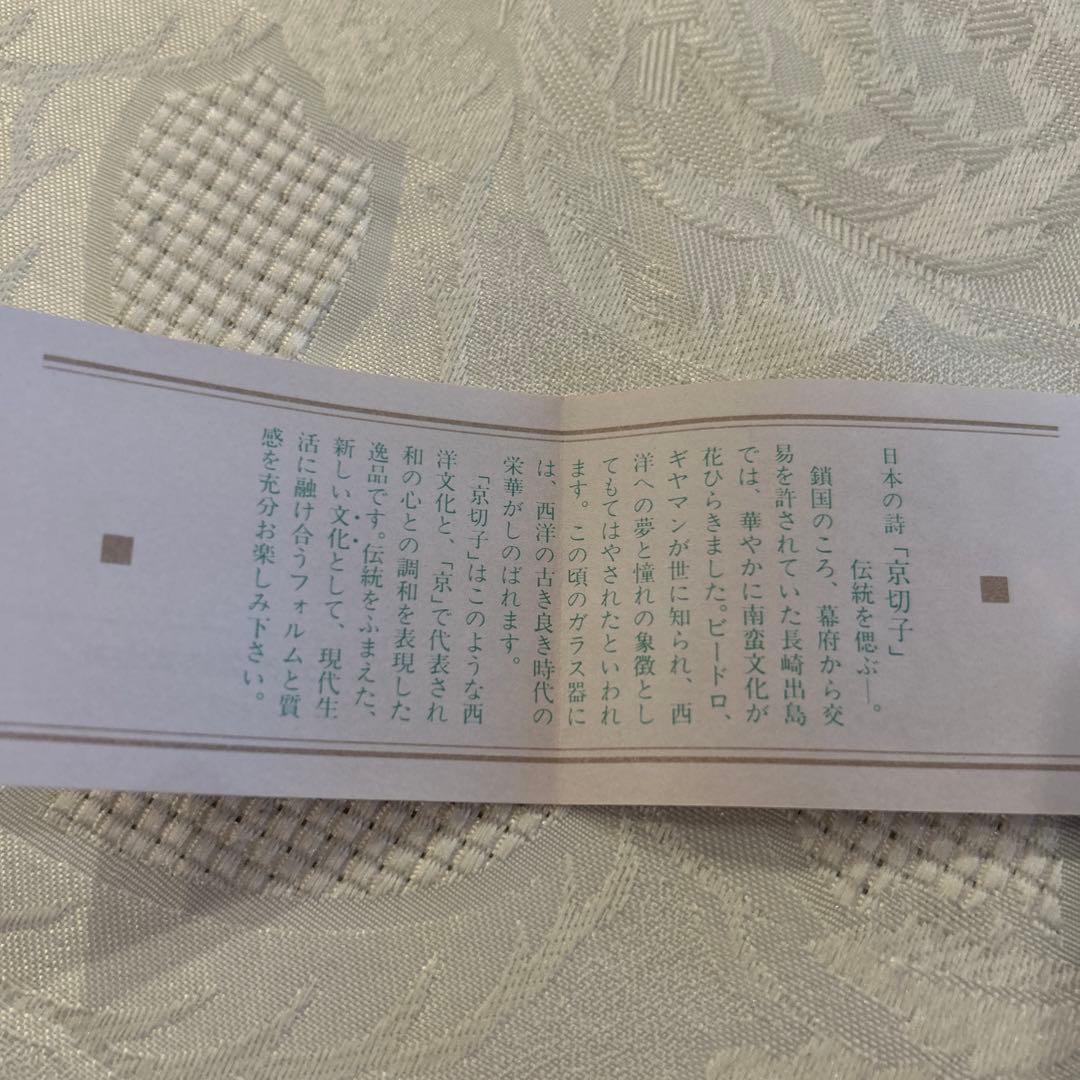 日本の詩「京切子」
伝統を偲ぶ―。
鎖国のころ、幕府から交
易を許されていた長崎出島
では、華やかに南蛮文化が
花ひらきました。ビードロ、
ギヤマンが世に知られ、西
洋への夢と憧れの象徴とし
てもてはやされたといわれ
ます。この頃のガラス器に
は、西洋の古き良き時代の
栄華がしのばれます。
「京切子」はこのような西
洋文化と、「京」で代表され
和の心との調和を表現した
逸品です。伝統をふまえた、
新しい文化として、現代生
活に融け合うフォルムと質
感を充分お楽しみ下さい。